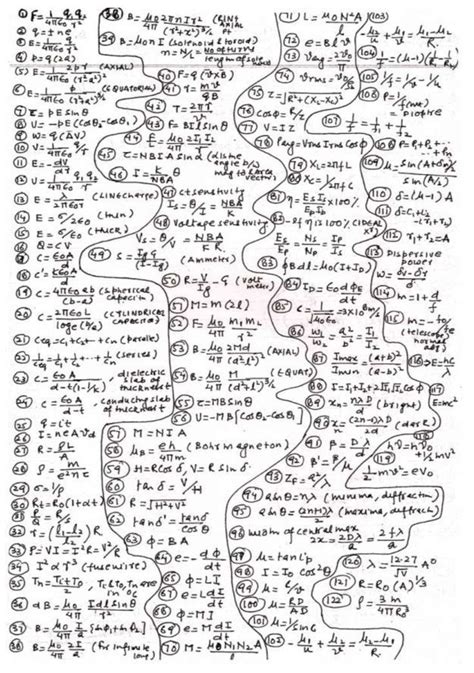 ① F = 1/4πε₀ q₁q₂/r²
② q = ± ne
④ P = q(2a)
⑤ E = 1/4πε₀ 2pr/(r²-a²)² (AXIAL)
⑥ E = 1/4πε₀ p/(r²+a²)^3/2 (EQUATORIAL)
⑦ τ = PE sinθ
⑧ U = -PE (cosθ₂ - cosθ₁)
⑨ W = q(ΔV)
⑩ V = 1/4πε₀ q/r
⑪ E = -dV/dr
⑫ U = 1/4πε₀ q₁q₂/r
⑬ (LINE charge)
⑭ E = σ/2ε₀ (thin)
⑮ E = σ/ε₀ (THICK)
⑯ Q = CV
⑰ C = ε₀A/d
⑱ C' = Kε₀A/d
⑲ C = 4πε₀ab/(b-a) (spherical capacitor)
⑳ C = 2πε₀L/logₑ(b/a) (CYLINDRICAL CAPACITOR)
㉑ Ceq = C₁ + C₂ + - Cn (parallel)
㉒ 1/Ceq = 1/C₁ + 1/C₂ + - - + 1/Cn (series)
㉓ C = ε₀A/d-t(1-1/K), dielectric slab of thickness t
㉔ C = ε₀A/d-t, conducting slab of thickness t
㉕ q = it
㉖ I = neAVd
㉗ R = ρL/A
㉘ ρ = m/ne²τ
㉙ σ = 1/ρ
㉚ Rt = R₀(1+αt)
㉛ P/Q = R/S
㉜ r = (l₁-l₂/l₂) R
㉝ P = VI = I²R = V²/R
㉞ I² α r³ (fuse wire)
㉟ Tn = Ti+Tc/2, Ti & Tc, Tn are in °C
㊱ dB = μ₀/4π Idl sinθ/r²
㊲ B = μ₀/4π I/a [sinϕ₁ + sinϕ₂]
㊳ B = μ₀/4π 2I/a (for infinite long)
㊳ B = μ₀/4π 2πnIr²/(r²+x²)^3/2
㊴ B = μ₀nI (solenoid & toroid)
㊵ F = q(v×B)
㊶ r = mv/qB
㊷ T = 2πr/v
㊸ F = BIl sinθ
㊹ F/l = μ₀/4π 2I₁I₂/r
㊺ τ = NBIA sinα
㊼ ct sensitivity
Is = θ/I = NBA/K
㊽ Voltage sensitivity
Vs = θ/V = NBA/KR
㊾ S = IgG/I-Ig (Ammeter)
㊿ R = V/Ig - G (Voltmeter)
51 M = m(2l)
52 F = μ₀/4π m₁m₂/r²
53 B = μ₀/4π 2Md/(d²-l²)² (AXIAL)
54 B = μ₀/4π M/(d²+l²)^3/2 (EQUAT)
55 τ = MB sinθ
56 U = -MB[cosθ₂ - cosθ₁]
57 M = NIA
58 μB = eh/4πm (Bohr magneton)
59 H = R cosδ, V = R sinδ
60 tanδ = V/H
61 R = √H²+V²
62 tanδ' = tanδ/cosθ
63 ϕ = BA
64 e = -dϕ/dt
65 ϕ = LI
67 e = -L dI/dt
68 ϕ = MI
69 e = M dI/dt
70 M = μ₀N₁N₂A/l
71 L = μ₀N²A/l
72 e = Blv
74 Vrms = V₀/√2
75 Z = √R²+(XL-Xc)²
76 cosϕ = R/Z
77 V = IZ
78 Pav = Vrms Irms cosϕ
79 XL = 2πfL
80 Xc = 1/2πfC
81 η = EsIs/EpIp × 100%
Es/Ep = Ns/Np = Ip/Is
83 ∮Bdl = μ₀(I+ID)
84 ID = ε₀ dϕE/dt
85 C = 1/√μ₀ε₀ = 3×10⁸ m/s
86 W₁/W₂ = a²/b² = I₁/I₂
87 Imax/Imin = (a+b)²/(a-b)²
88 I = I₁+I₂+2√I₁I₂ cosϕ
89 xn = nλD/d (bright)
90 xn = (2n-1)λD/2d (dark)
91 β = Dλ/d
92 β' = β/μ
93 ZF = a²/λ
94 a sinθ = nλ (minima, diffractn)
95 a sinθ = (2n+1)λ/2 (maxima, diffractn)
96 width of central max
2x = 2Dλ/a = 2fλ/a
97 μ = tan ip
98 I = I₀ cos²θ
99 μ = c/v
100 μ = RD/AD
101 μ = 1/sin c
102 -μ₁/u + μ₂/v = μ₂-μ₁/R
103 -μ₂/u + μ₁/v = μ₁-μ₂/R
105 1/f = 1/v - 1/u
107 1/F = 1/f₁ + 1/f₂
108 P = P₁+P₂+ - - + Pn
109 μ = sin(A+δm)/2/sin(A/2)
110 δ = (μ-1)A
112 r₁+r₂ = A
113 Dispersive power
114 m = 1+d/f
117 E = mc²
1/2 mv² = eV₀
120 λ = 12.27/√V A°
121 R = R₀(A)^1/3
122 ρ = 3m/4πR₀³